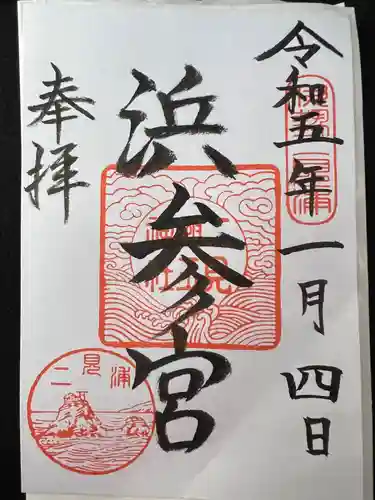 令和五年一月四日
浜参宮
奉拝
二見浦